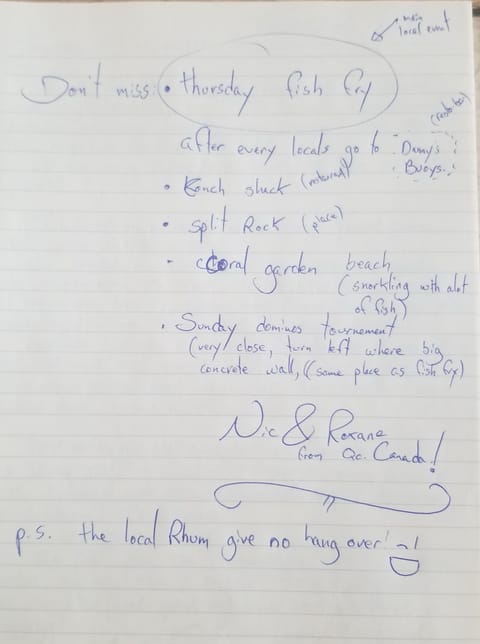 main
local event
Don't miss: • thursday fish fry
(resto-bar)
after every locals go to Dannys
Buoys
• Konch shack (restaurant)
• split Rock (place)
- coral garden beach
(snorkling with alot
of fish)
• Sunday dominos tournement
(very close, turn left where big
concrete wall, (same place as fish fry)
Nic & Roxane
from Qc. Canada!
p.s. the local Rhum give no hang over!